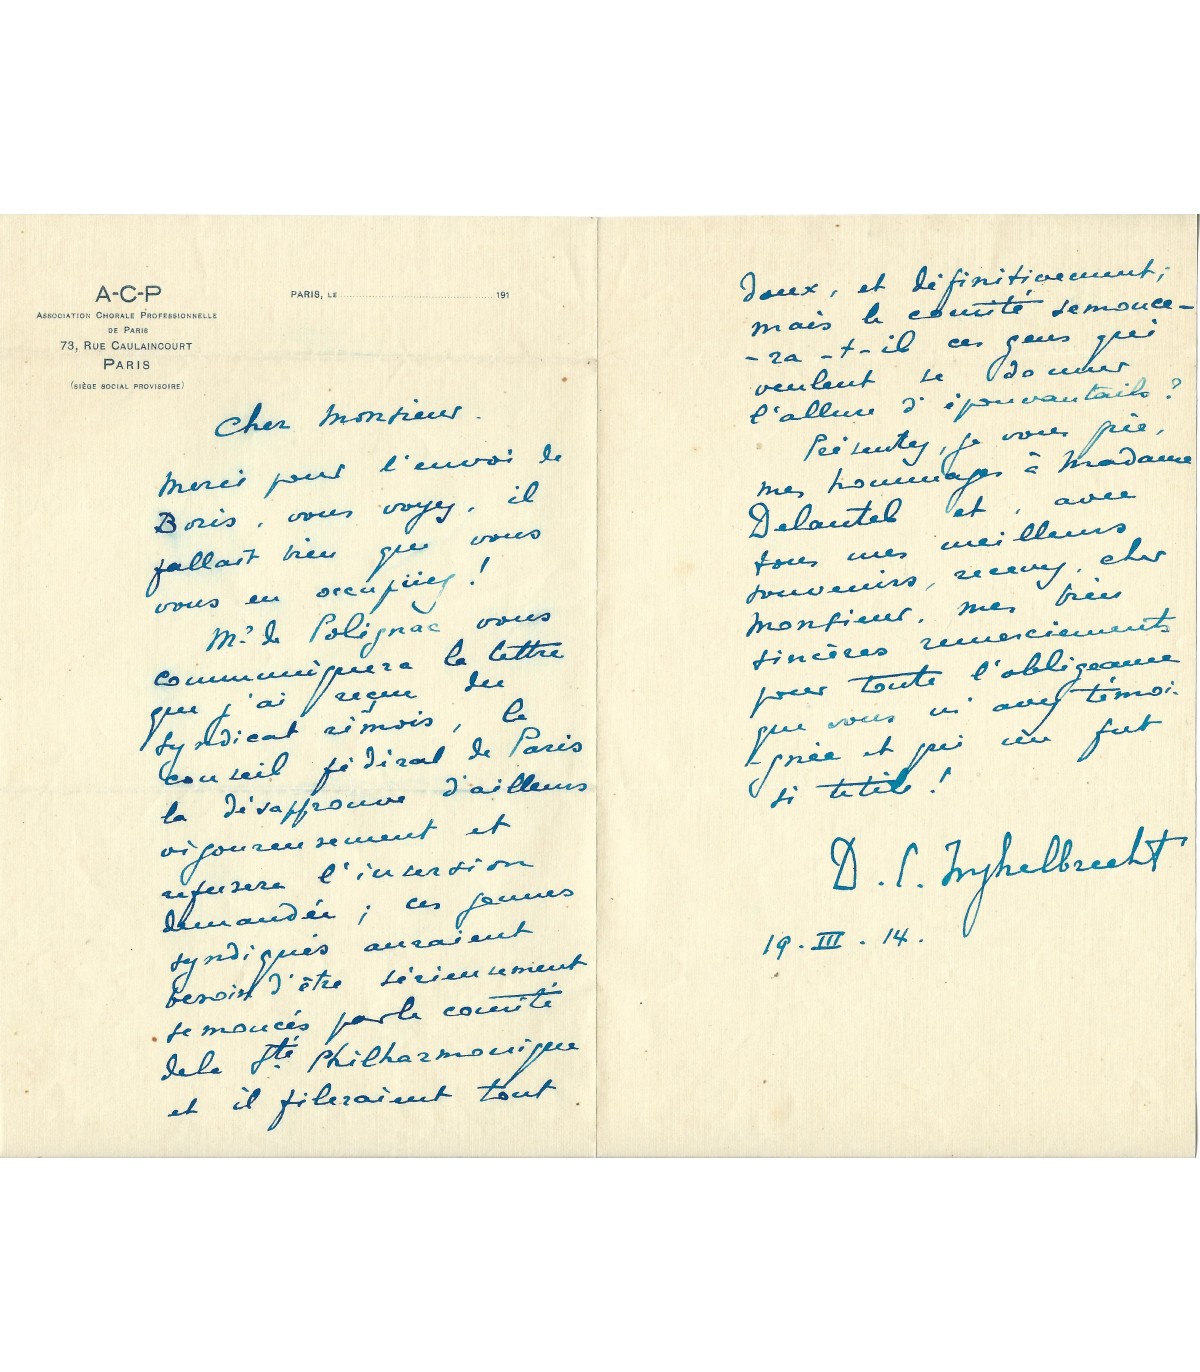 A-C-P
ASSOCIATION CHORALE PROFESSIONNELLE
DE PARIS
73, RUE CAULAINCOURT
PARIS
(SIÈGE SOCIAL PROVISOIRE)
PARIS, LE ........................ 191
Cher Monsieur.
Merci pour l'envoi de
Boris, vous voyez, il
fallait bien que vous
vous en occupiiez !
Mr. de Polignac vous
communiquera la lettre
que j'ai reçue du
syndicat rémois, le
conseil fédéral de Paris
la désapprouve d'ailleurs
vigoureusement et
refusera l'insertion
demandée ; ces jeunes
syndiqués auraient
besoin d'être sérieusement
semoncés par le comité
de la Sté. Philharmonique
et il fileraient tout
doux, et définitivement ;
mais le comité semonce-
-ra-t-il ces gens qui
veulent se donner
l'allure d'épouvantails ?
Présentez, je vous prie,
mes hommages à Madame
et, avec
tous mes meilleurs
souvenirs, recevez, cher
Monsieur, mes bien
sincères remerciements
pour toute l'obligeance
que vous m'avez témoi-
gnée et qui me fut
si utile !
D. E. Inghelbrecht
19. III. 14.